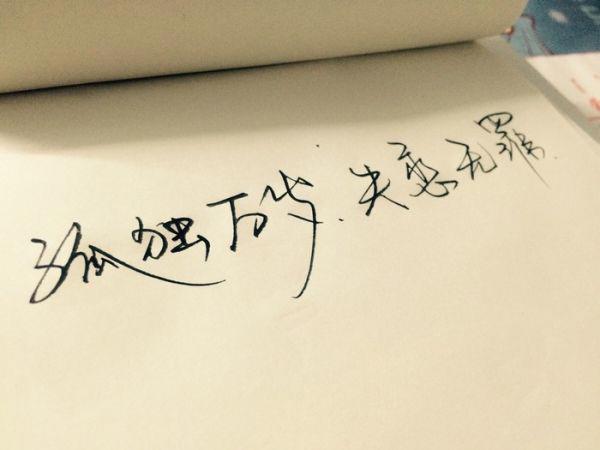 孤独万岁.失恋无罪.